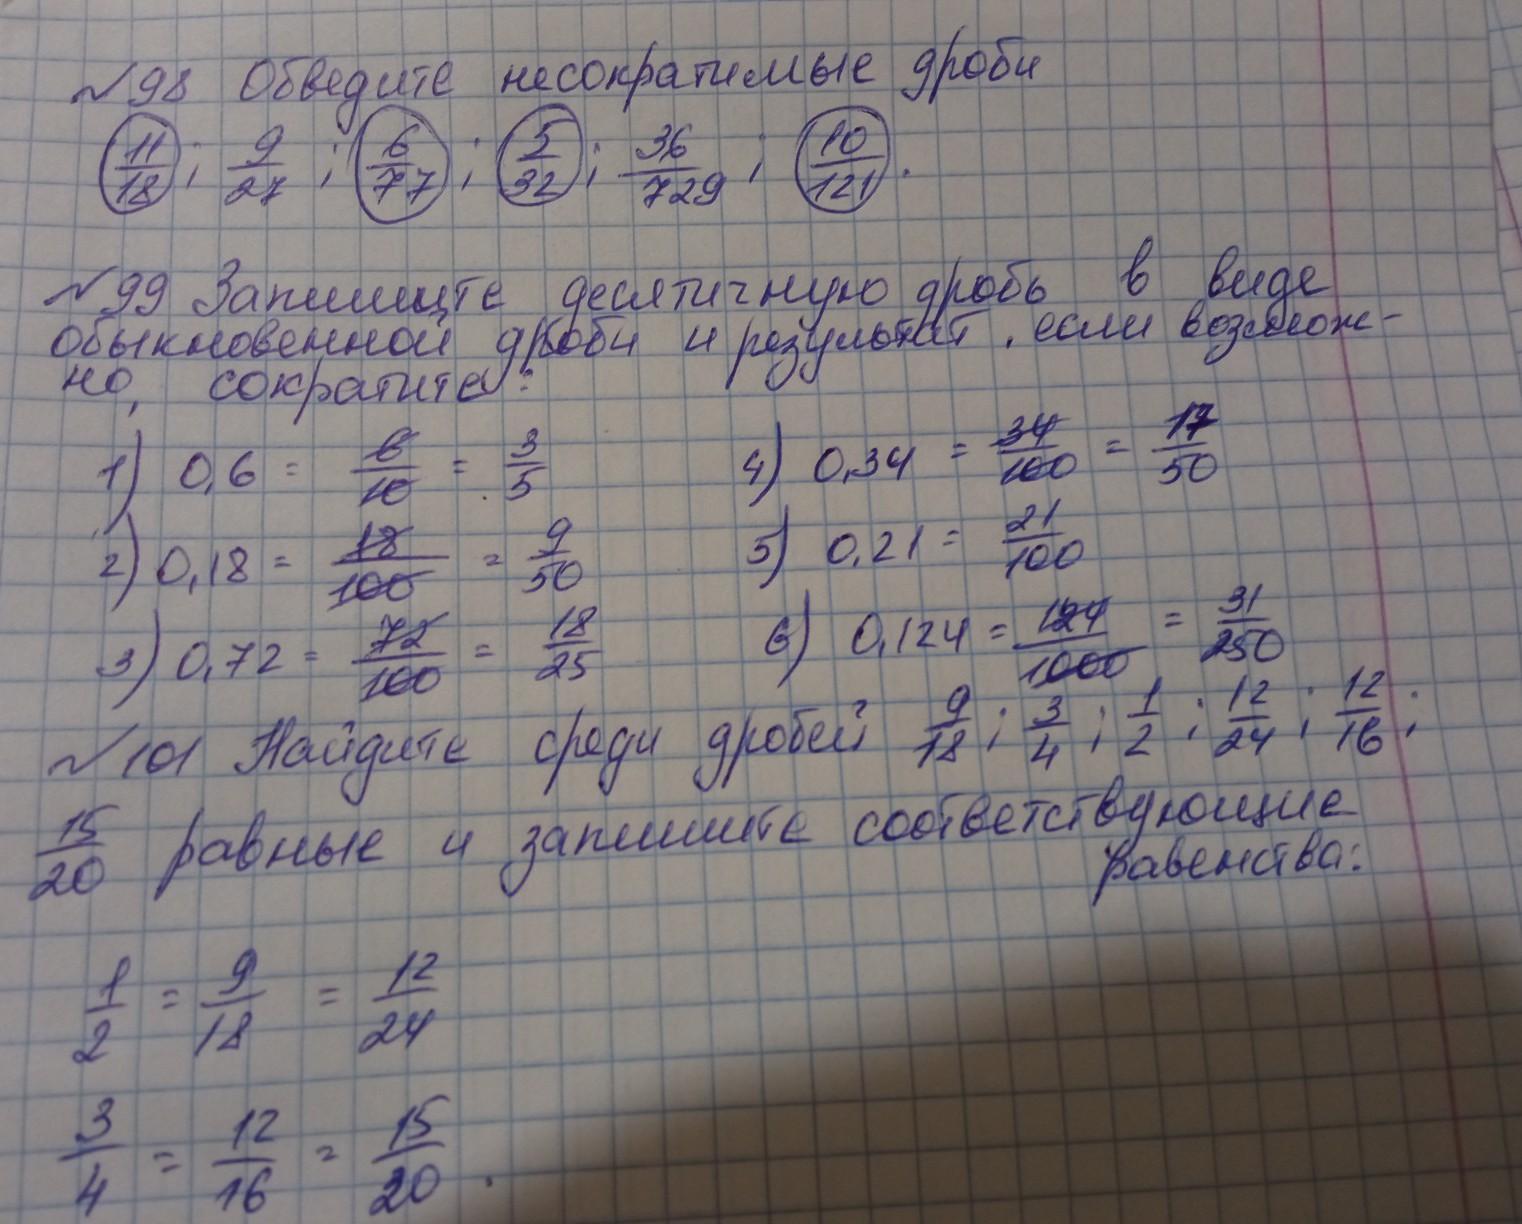 №98 Обведите несократимые дроби
11/18 ; 9/27 ; 6/77 ; 5/32 ; 36/729 ; 10/121 .
№99 Запишите десятичную дробь в виде
обыкновенной дроби и результат, если возмож-
но, сократите:
1) 0,6 = 6/10 = 3/5 4) 0,34 = 34/100 = 17/50
2) 0,18 = 18/100 = 9/50 5) 0,21 = 21/100
3) 0,72 = 72/100 = 18/25 6) 0,124 = 124/1000 = 31/250
№101 Найдите среди дробей 9/18 ; 3/4 ; 1/2 ; 12/24 ; 12/16 ;
15/20 равные и запишите соответствующие
равенства:
1/2 = 9/18 = 12/24
3/4 = 12/16 = 15/20 .